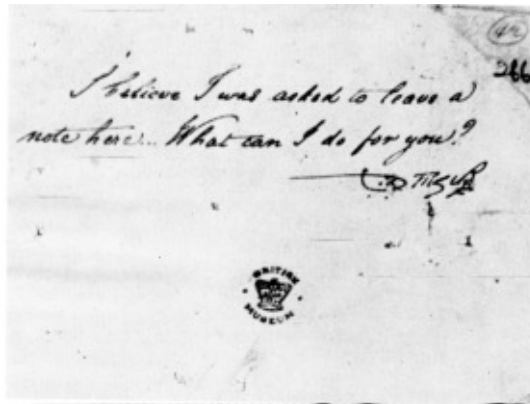 42
266
I believe I was asked to leave a
note here... What can I do for you?
BRITISH
MUSEUM